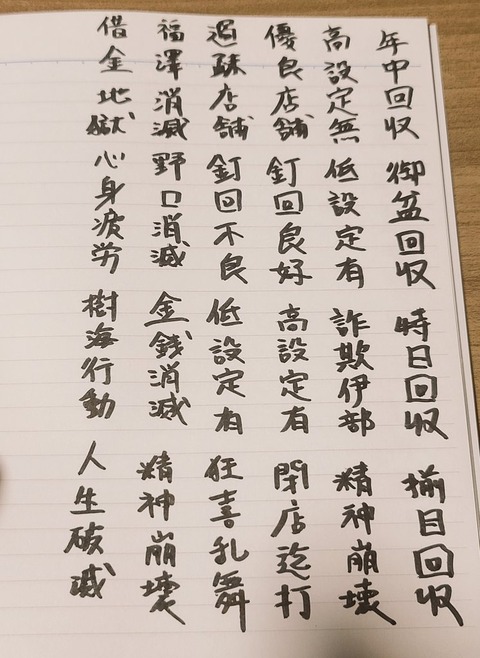 年中回収 御盆回収 時日回収 揃目回収
高設定無 低設定有 詐欺伊部 精神崩壊
優良店舗 釘回良好 高設定有 閉店迄打
過疎店舗 釘回不良 低設定有 狂喜乱舞
福澤消滅 野口消滅 金銭消滅 精神崩壊
借金地獄 心身疲労 樹海行動 人生破滅